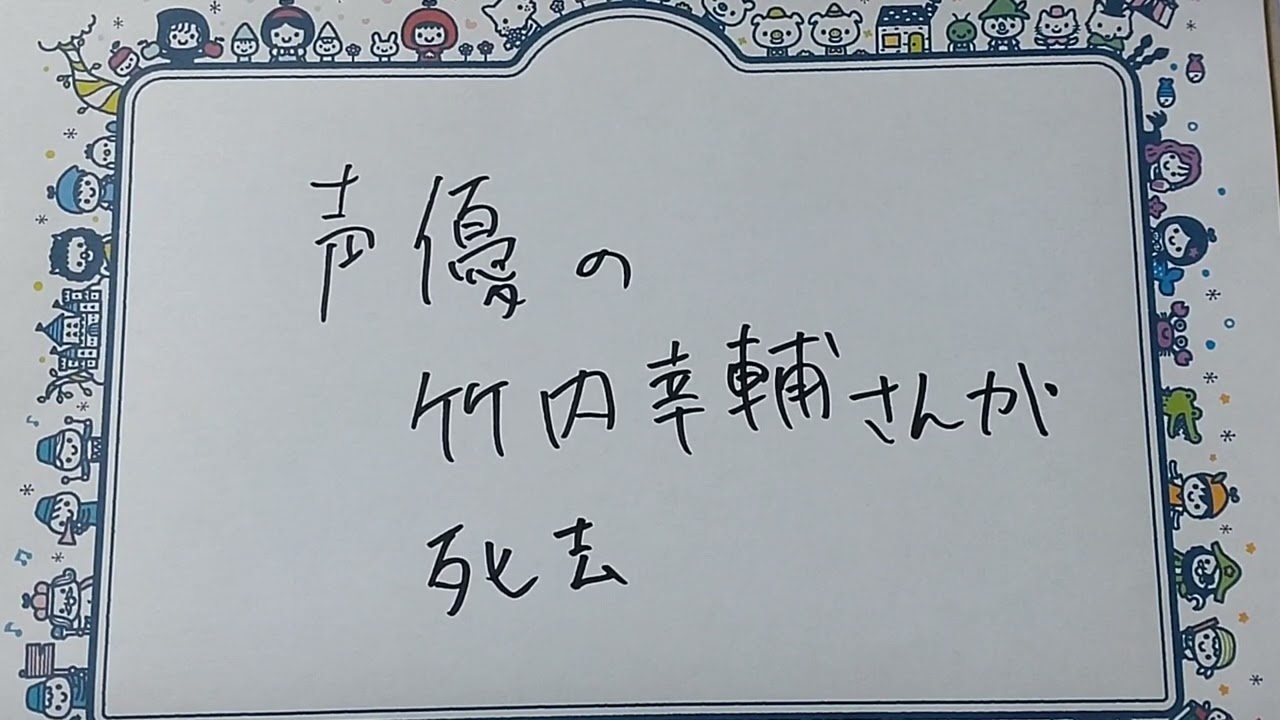 声優の
竹内幸輔さんが
死去